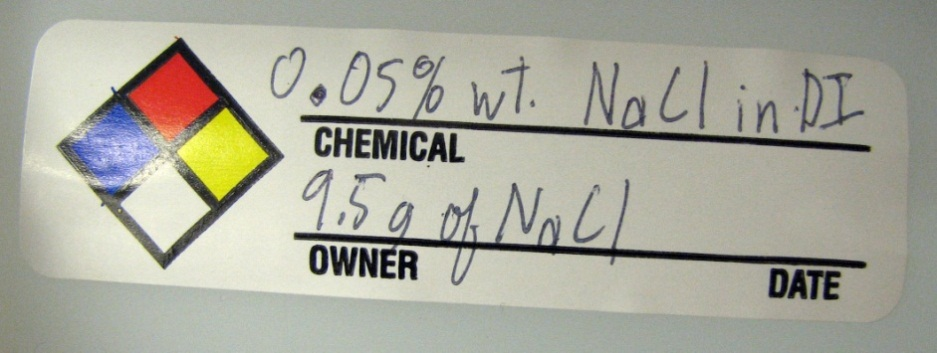 0.05% wt. NaCl in DI
CHEMICAL
9.5g of NaCl
OWNER DATE